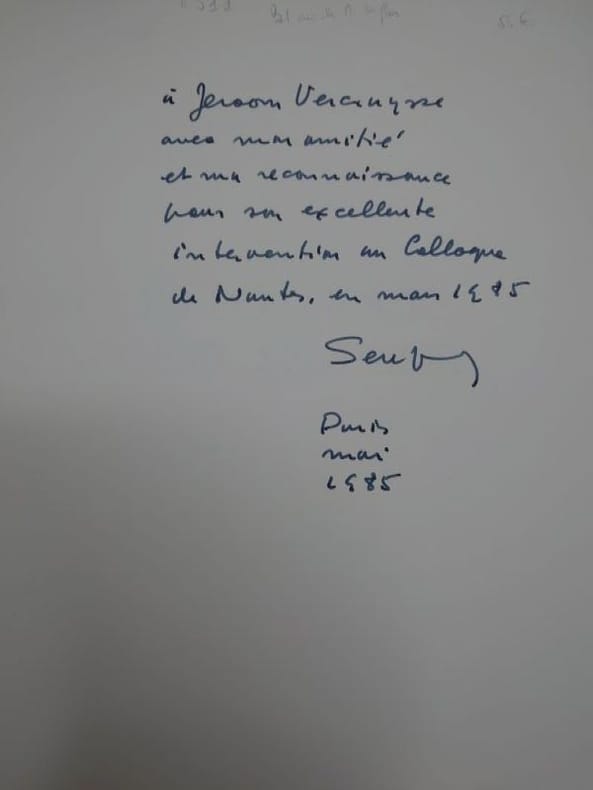 à Jeroom Vercruysse
avec mon amitié
et ma reconnaissance
pour son excellente
intervention au Colloque
de Nantes, en mars 1985
Paris
mai
1985